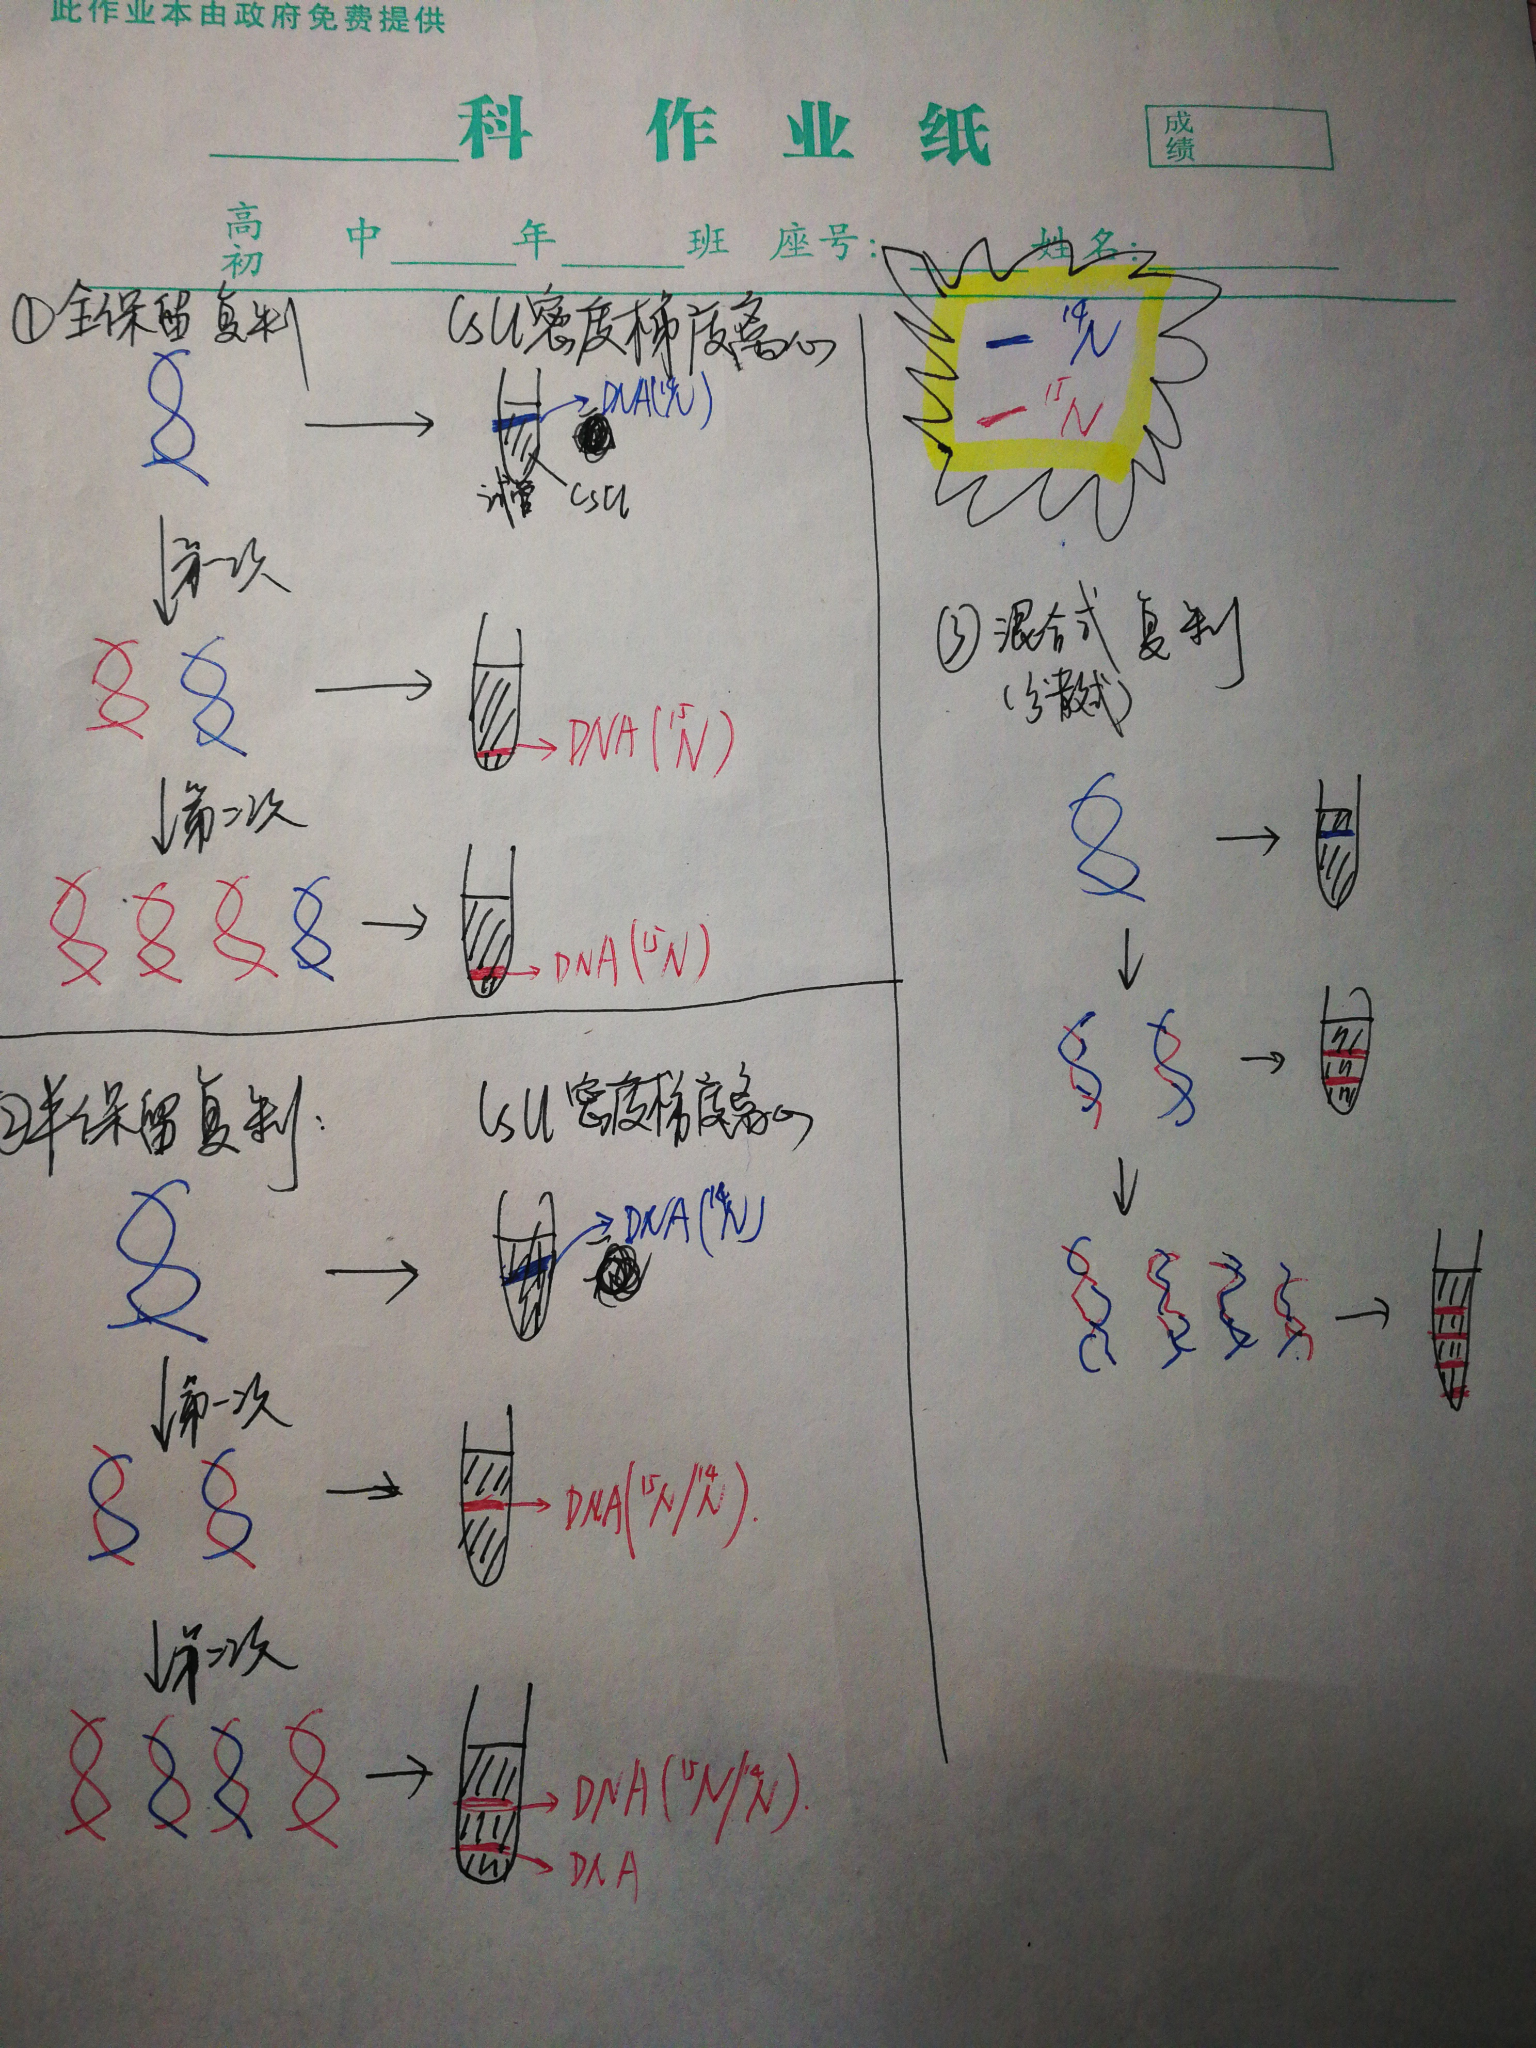 此作业本由政府免费提供
科 作 业 纸
成绩
高 中 年 班 座号: 姓名:
初
①全保留复制
CsCl密度梯度离心
DNA(¹⁴N)
试管 CsCl
第一次
DNA(¹⁵N)
第二次
DNA(¹⁵N)
②半保留复制:
CsCl密度梯度离心
DNA(¹⁴N)
第一次
DNA(¹⁵N/¹⁴N).
第二次
DNA(¹⁵N/¹⁴N).
DNA
¹⁴N
¹⁵N
③混合式复制
(分散式)